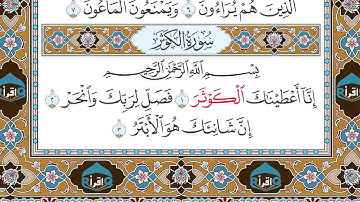 الَّذِينَ هُمْ يُرَاءُونَ ٦ وَيَمْنَعُونَ الْمَاعُونَ ٧
سُورَةُ الْكَوْثَرِ
بِسْمِ اللَّهِ الرَّحْمَٰنِ الرَّحِيمِ
إِنَّا أَعْطَيْنَاكَ الْكَوْثَرَ ١ فَصَلِّ لِرَبِّكَ وَانْحَرْ ٢
إِنَّ شَانِئَكَ هُوَ الْأَبْتَرُ ٣
اقرأ
اقرأ